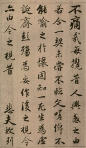 不痛哉每攬昔人興感之由
若合一契未嘗不臨文嗟悼不
能喻之於懷固知一死生為虛
誕齊彭殤為妄作後之視今
亦由今之視昔